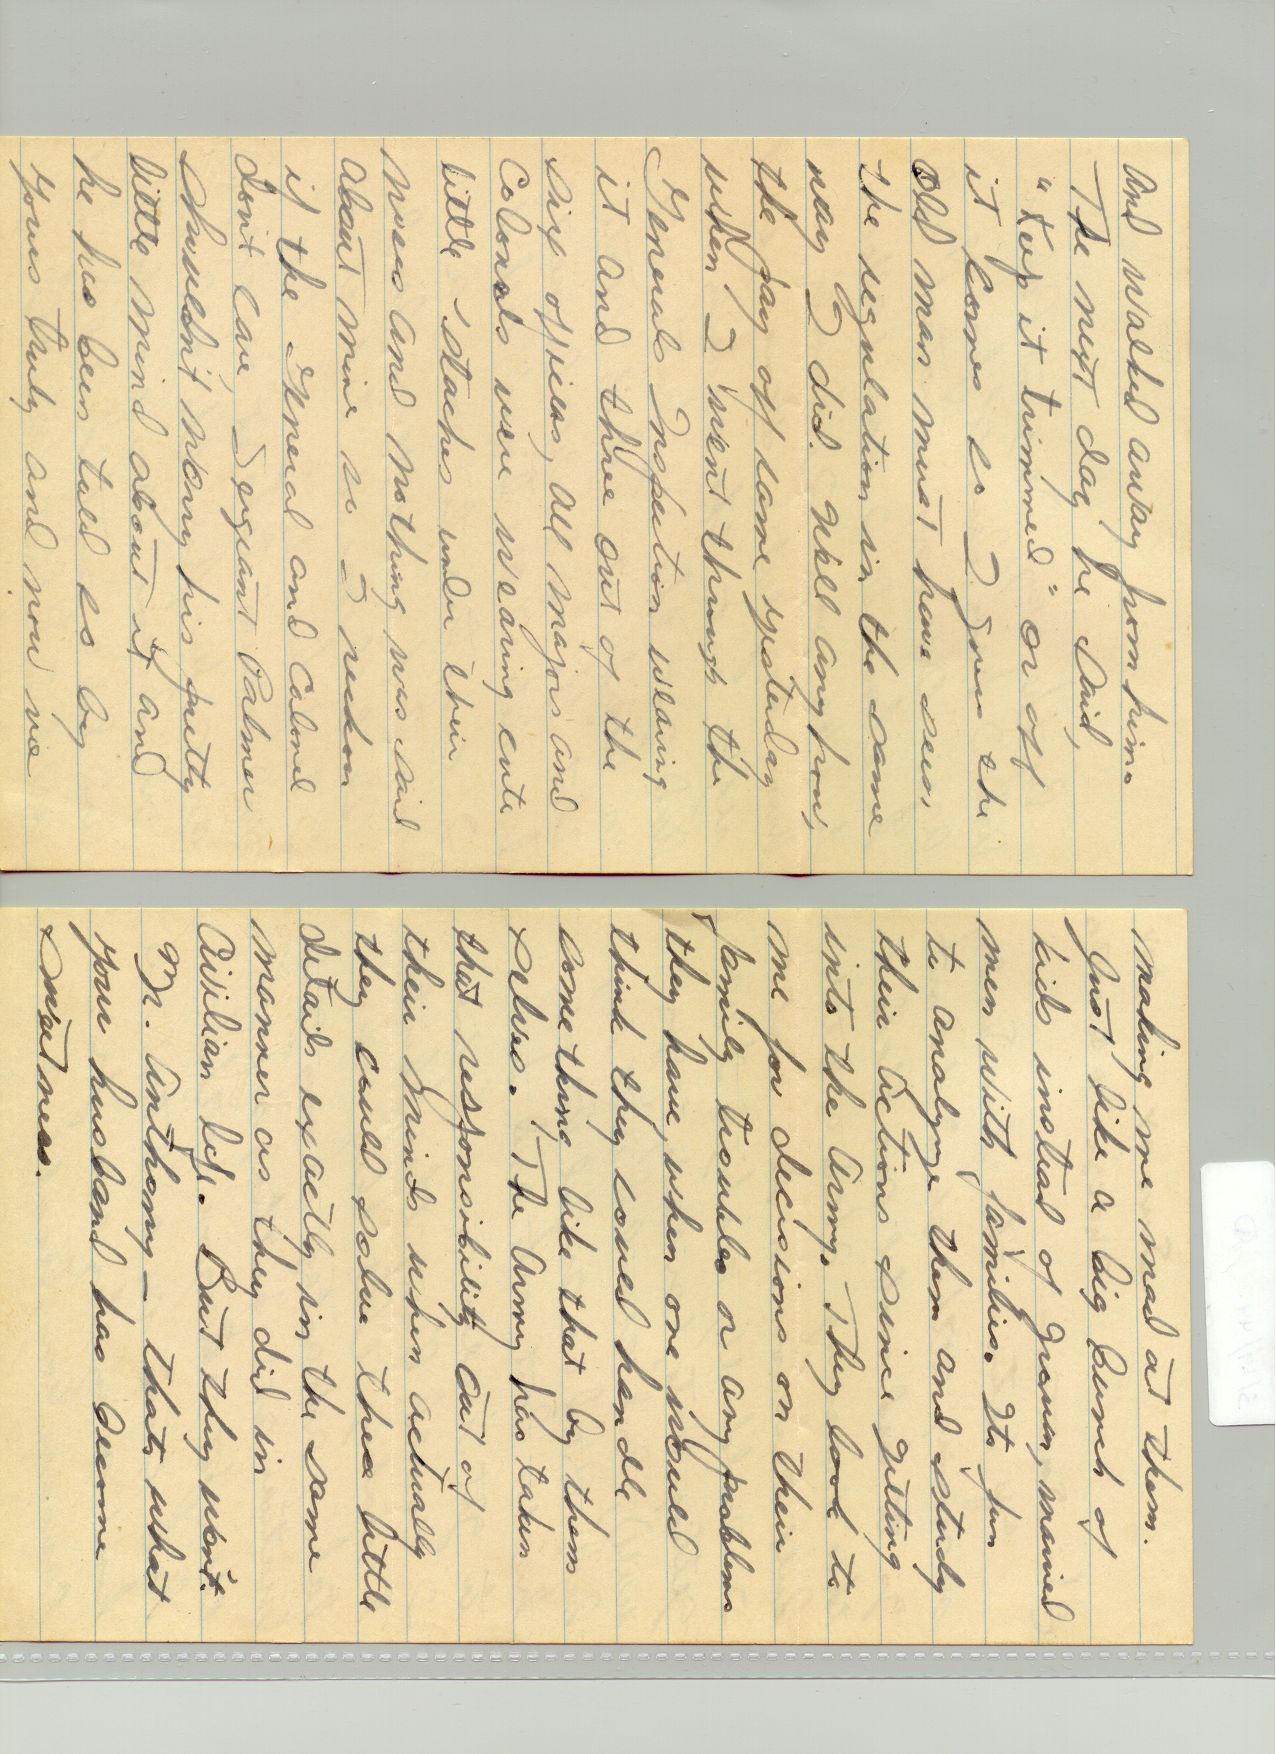 and walked away from him.
The next day he said,
"Keep it trimmed" or off
it comes so I guess the
old man must have seen
the regulation in the same
way I did. Well anyhow,
the pay off came yesterday
when I went through the
Generals Inspection wearing
it and three out of the
six officers, all Majors and
Colonels were wearing cute
little 'staches under their
noses and nothing was said
about mine so I reckon
if the General and Colonel
don't care, Sergeant Palmer
shouldn't worry his pretty
little mind about it and
he has been told so by
yours truly and now we
making me mad at them.
Just like a big bunch of
kids instead of grown, married
men with families. Its fun
to analyze them and study
their actions since getting
into the Army. They look to
me for decisions on their
family troubles or any problems
they have, when one would
think they could handle
something like that by them
selves. The Army has taken
that responsibility out of
their minds when actually
they could solve these little
details exactly in the same
manner as they did in
Civilian life. But they won't.
Mr. Anthony - thats what
your husband has become
Sweetness.